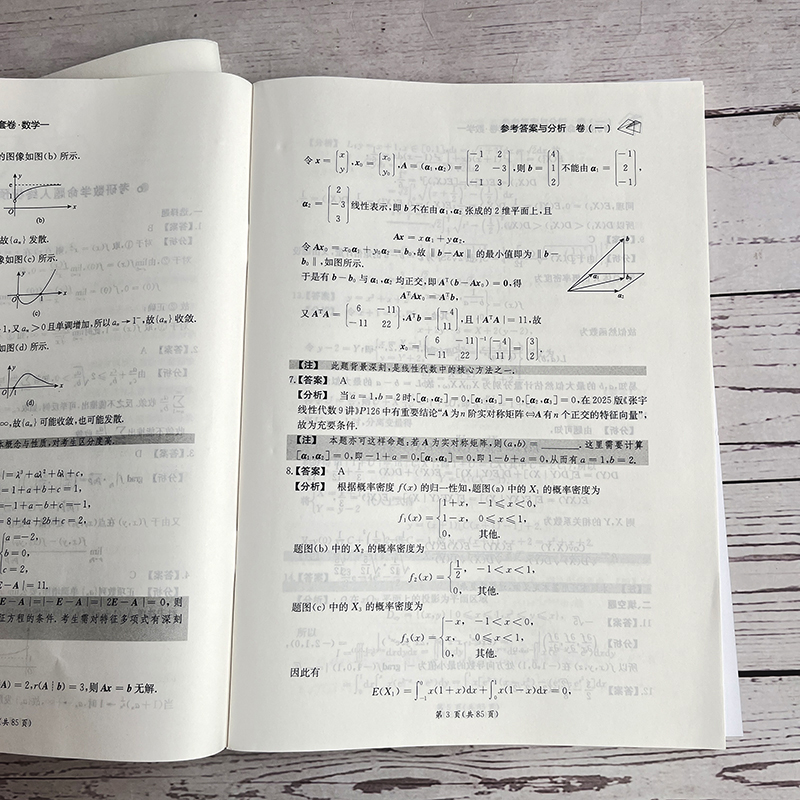 套卷·数学一
的图像如图(b)所示.
(b)
故{aₙ}发散.
像如图(c)所示.
(c)
-1,又aₙ>0且单调增加,所以aₙ→1⁻,故{aₙ}收敛.
如图(d)所示.
(d)
∞,故{aₙ}可能收敛,也可能发散.
本概念与性质,对考生区分度高.
|=λ³+aλ²+bλ+c,
=1+a+b+c=1,
=-1+a-b+c=-1,
=8+4a+2b+c=2,
a=-2,
b=0,
c=2,
E-A|=11.
E-A|=|-E-A|=|2E-A|=0,则
征方程的条件.考生需对特征多项式有深刻
A)=2,r(A|b)=3,则Ax=b无解.
(共85页)
参考答案与分析 卷(一)
令x=[x y],x₀=[x₀ y₀],A=(α₁,α₂)=[-1 2; 2 -3; -1 3],则b=[4 1 2]不能由α₁=[-1 2 -1],
α₂=[2 -3 3]线性表示,即b不在由α₁,α₂张成的2维平面上,且
Ax=xα₁+yα₂.
令Ax₀=x₀α₁+y₀α₂=b₀,故‖b-Ax‖的最小值即为‖b-
b₀‖,如图所示.
于是有b-b₀与α₁,α₂均正交,即Aᵀ(b-Ax₀)=0,得
AᵀAx₀=Aᵀb,
又AᵀA=[6 -11; -11 22],Aᵀb=[-4 11],且|AᵀA|=11,故
x₀=[6 -11; -11 22]⁻¹[-4 11]=[3 2].
b
α₁
b₀
α₂
【注】 此题背景深刻,是线性代数中的核心方法之一.
7.【答案】 A
【分析】 当a=1,b=2时,[α₁,α₂]=0,[α₁,α₃]=0,[α₂,α₃]=0,在2025版《张宇
线性代数9讲》P126中有重要结论“A为n阶实对称矩阵⇔A有n个正交的特征向量”,
故为充要条件.
【注】 本题亦可这样命题,若A为实对称矩阵,则(a,b)=______.这里需要计算
[α₁,α₂]=0,即-1+a=0,[α₁,α₃]=0,即1-b+a=0,从而有a=1,b=2.
8.【答案】 A
【分析】 根据概率密度f(x)的归一性知,题图(a)中的X₁的概率密度为
f₁(x)={1+x, -1<x<0,
1-x, 0≤x≤1,
0, 其他.
题图(b)中的X₂的概率密度为
f₂(x)={1/2, -1<x<1,
0, 其他.
题图(c)中的X₃的概率密度为
f₃(x)={-x, -1<x<0,
x, 0≤x≤1,
0, 其他.
因此有
E(X₁)=∫₋₁⁰x(1+x)dx+∫₀¹x(1-x)dx=0,
第3页(共85页)